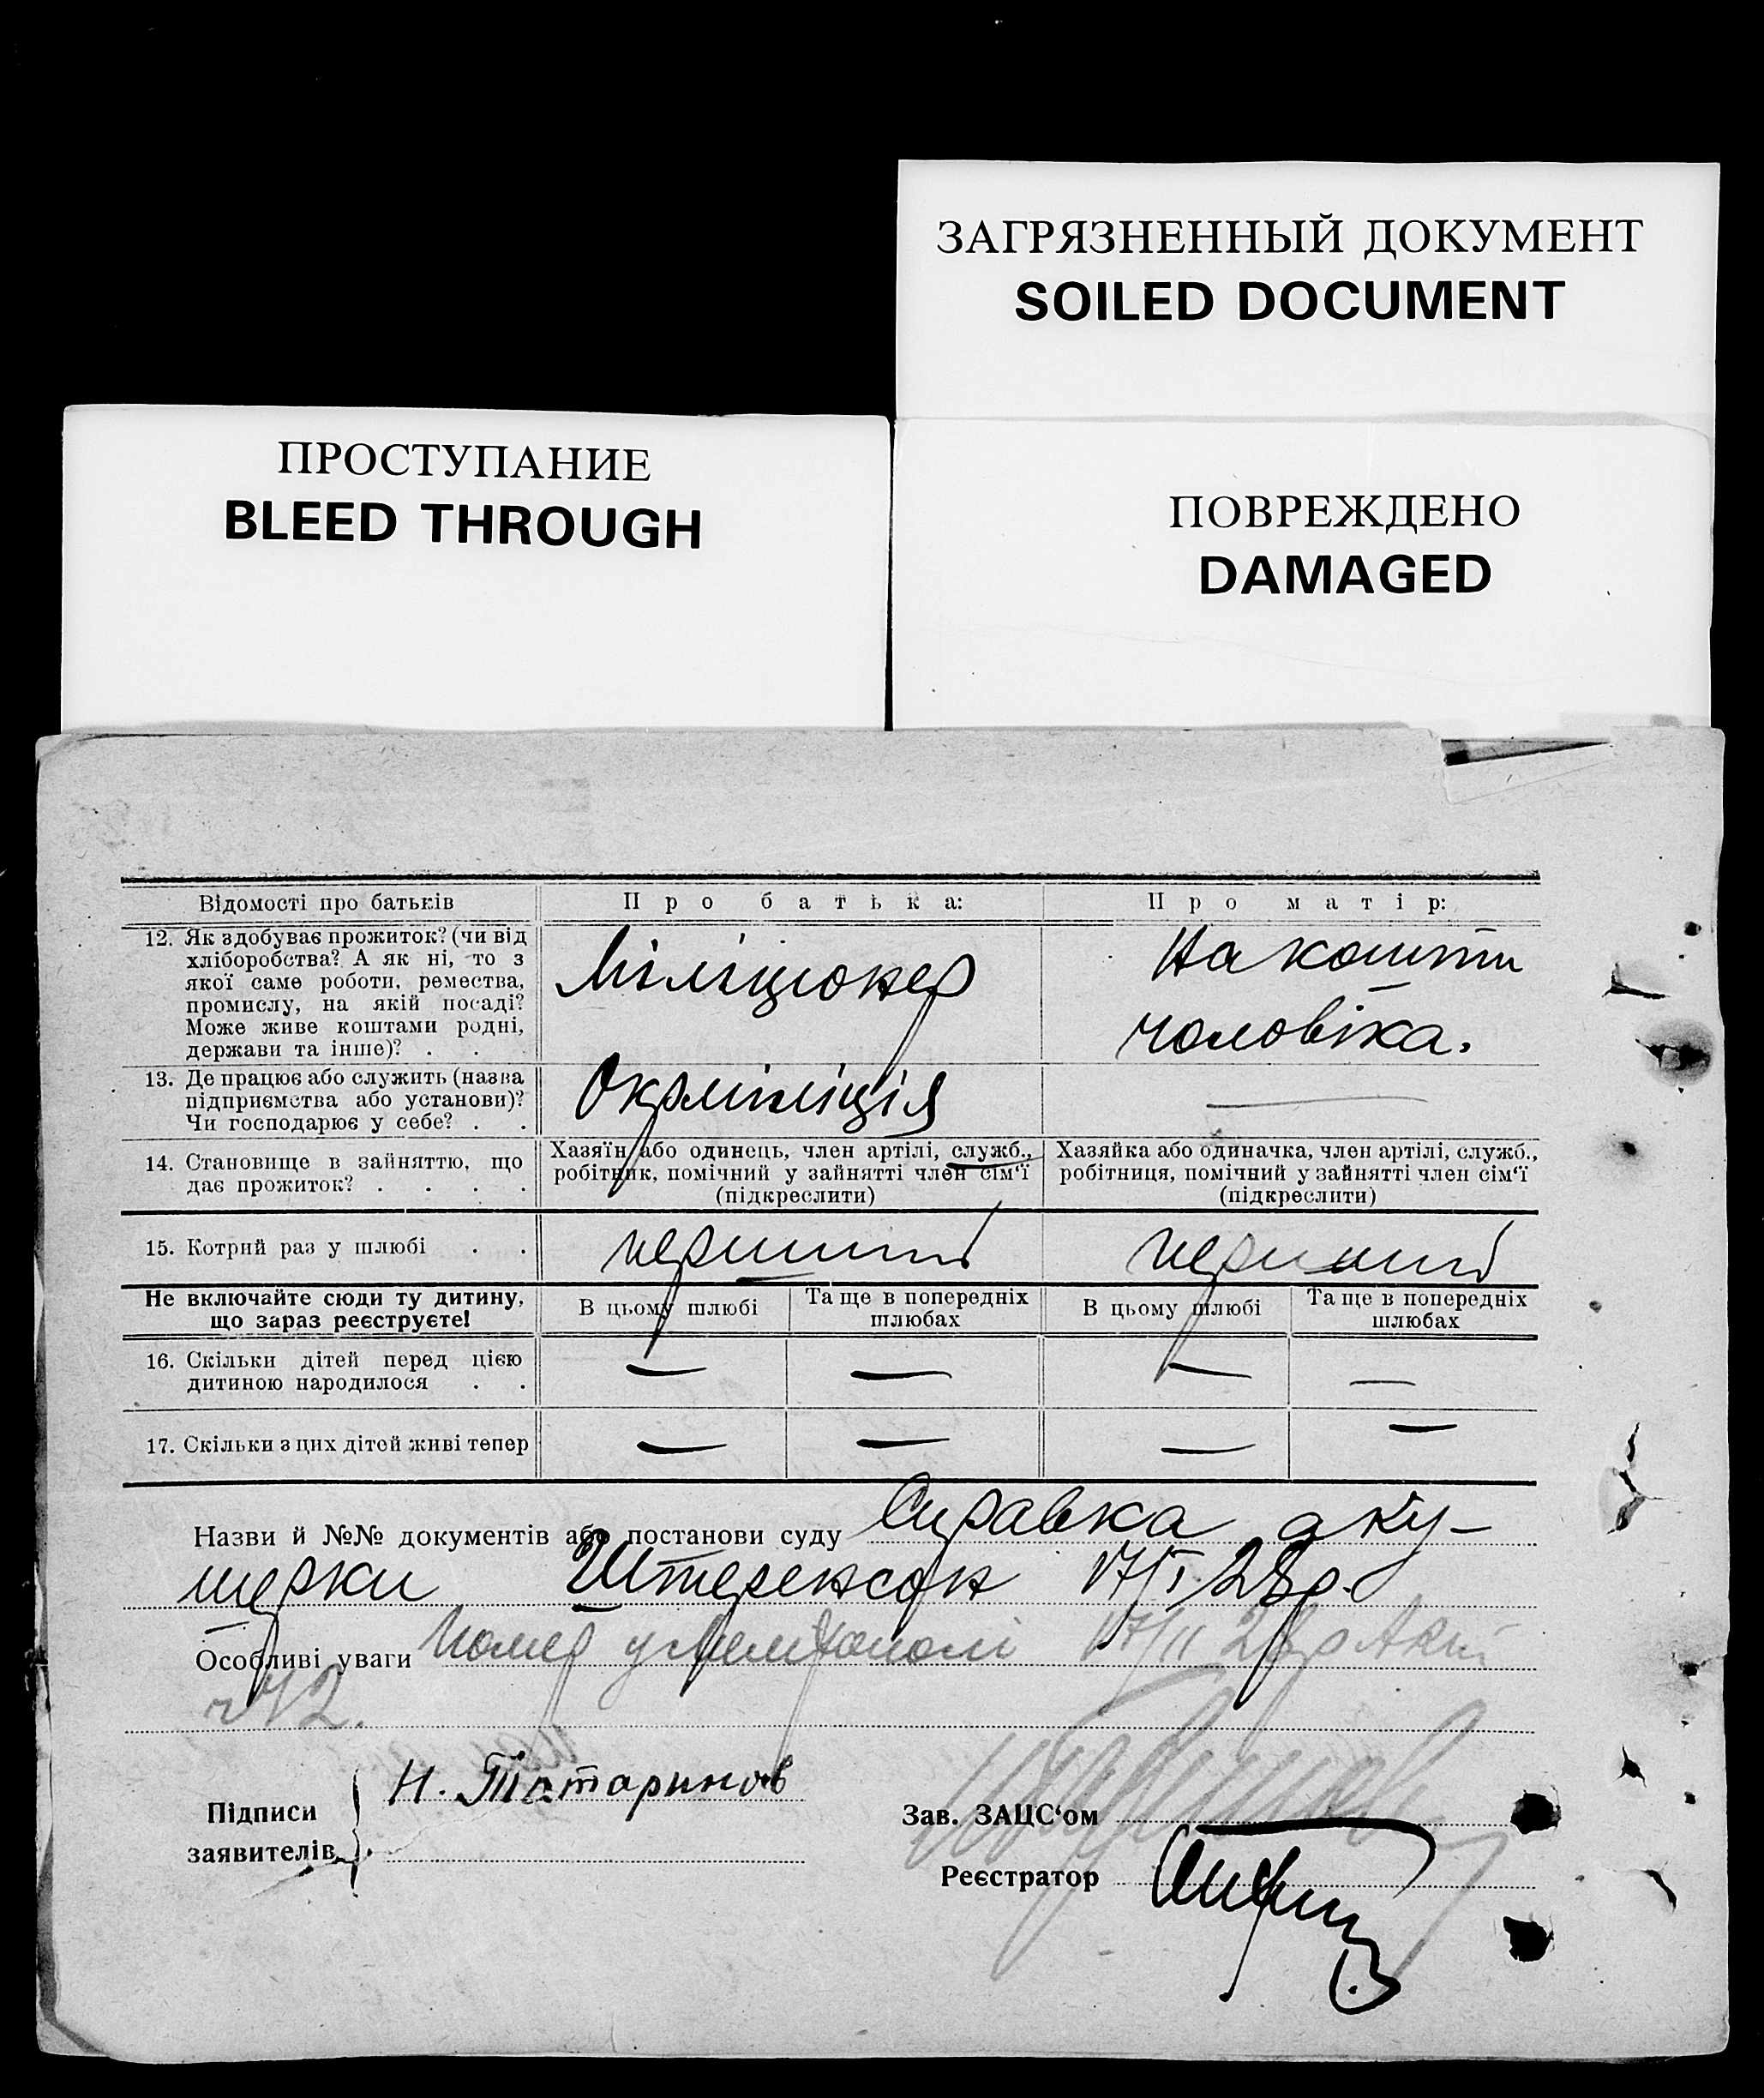 ЗАГРЯЗНЕННЫЙ ДОКУМЕНТ
SOILED DOCUMENT
ПРОСТУПАНИЕ
BLEED THROUGH
ПОВРЕЖДЕНО
DAMAGED
Відомості про батьків
Про батька:
Про матір:
12. Як здобуває прожиток? (чи від
хліборобства? А як ні, то з
якої саме роботи, ремества,
промислу, на якій посаді?
Може живе коштами родні,
держави та інше)? . .
Міліціонер
На кошти
чоловіка.
13. Де працює або служить (назва
підприємства або установи)?
Чи господарює у себе? . .
Окрміліція
14. Становище в зайняттю, що
дає прожиток? . . . .
Хазяїн або одинець, член артілі, служб.,
робітник, помічний у зайнятті член сім‘ї
(підкреслити)
Хазяйка або одиначка, член артілі, служб.,
робітниця, помічний у зайнятті член сім‘ї
(підкреслити)
15. Котрий раз у шлюбі . .
перший
перший
Не включайте сюди ту дитину,
що зараз реєструєте!
В цьому шлюбі
Та ще в попередніх
шлюбах
В цьому шлюбі
Та ще в попередніх
шлюбах
16. Скільки дітей перед цією
дитиною народилося . .
— — — —
17. Скільки з цих дітей живі тепер
— — — —
Назви й №№ документів або постанови суду Справка аку-
шерки Штеренсон 17/I 28р.
Особливі уваги Помер у Мелітополі 17/II 28р Акт
Підписи
заявителів
Н. Татаринов
Зав. ЗАЦС‘ом
Реєстратор